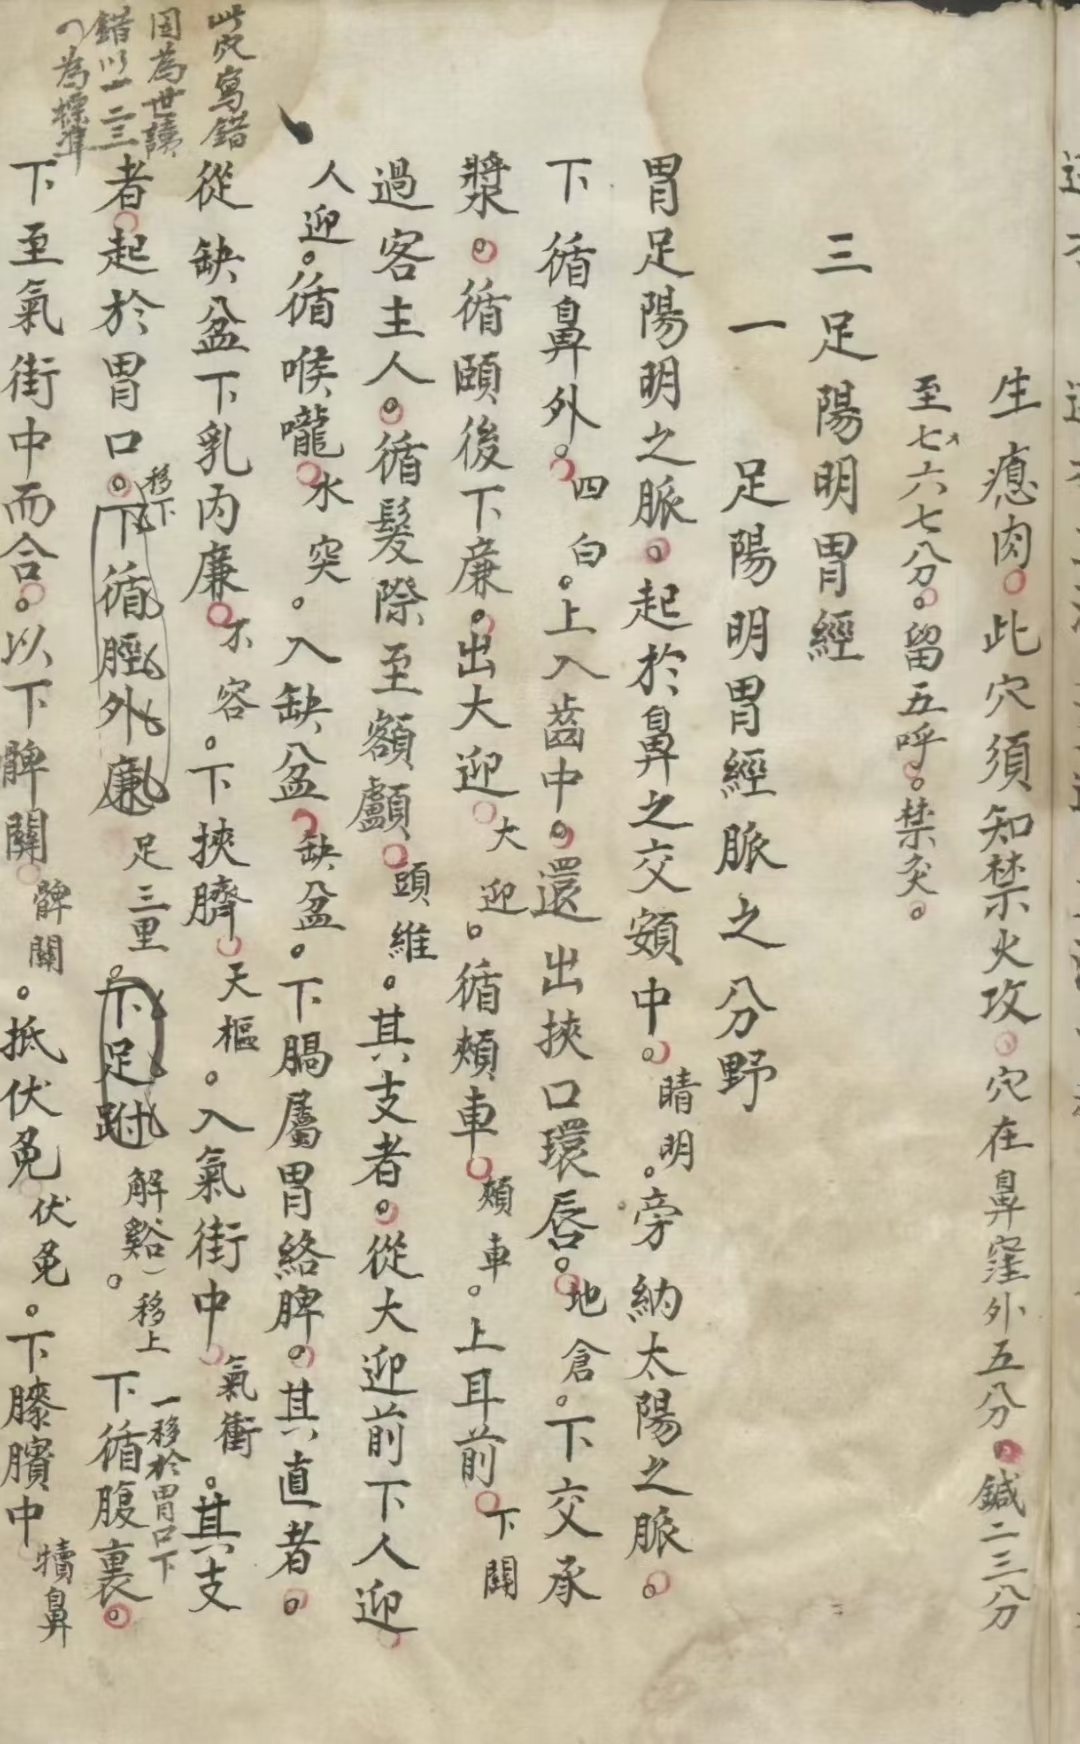 生瘜肉。此穴須知禁火攻。穴在鼻窪外五分。鍼二三分
至七六七八分。留五呼。禁灸。
三足陽明胃經
一　足陽明胃經脈之分野
胃足陽明之脈。起於鼻之交頞中。睛明。旁納太陽之脈。
下循鼻外。四白。上入齒中。還出挾口環唇。地倉。下交承
漿。循頤後下廉。出大迎。大迎。循頰車。頰車。上耳前。下關
過客主人。循髮際至額顱。頭維。其支者。從大迎前下人迎
人迎。循喉嚨。水突。入缺盆。缺盆。下膈屬胃絡脾。其直者。
從缺盆下乳內廉。不容。下挾臍。天樞。入氣街中。氣衝。其支
者。起於胃口。下循脛外廉足三里。下足跗解谿。下循腹裏。
移下
移上
一移於胃口下
下至氣街中而合。以下髀關。髀關。抵伏兔伏兔。下膝臏中。犢鼻
此穴寫錯
因為世讀
錯以一二三
為標準